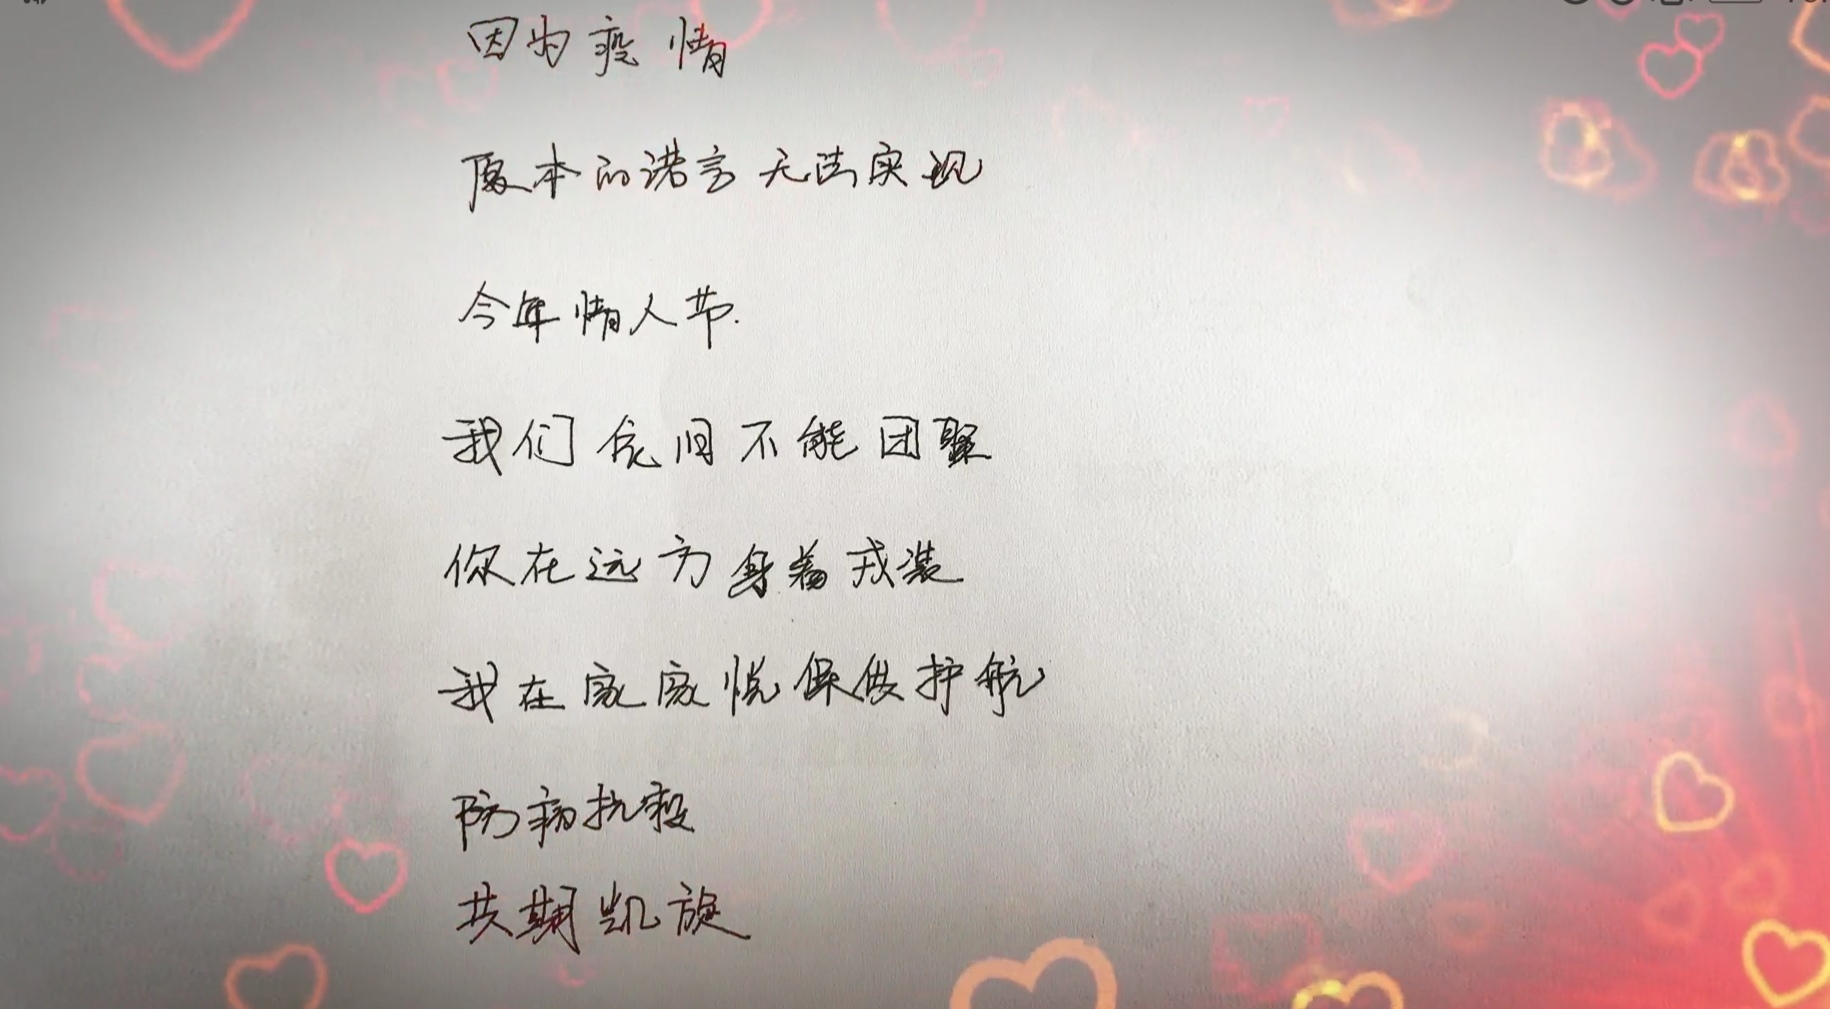 因为疫情
原本的诺言无法实现
今年情人节.
我们依旧不能团聚
你在远方身着戎装
我在家家悦保供护航
防病抗疫
共期凯旋